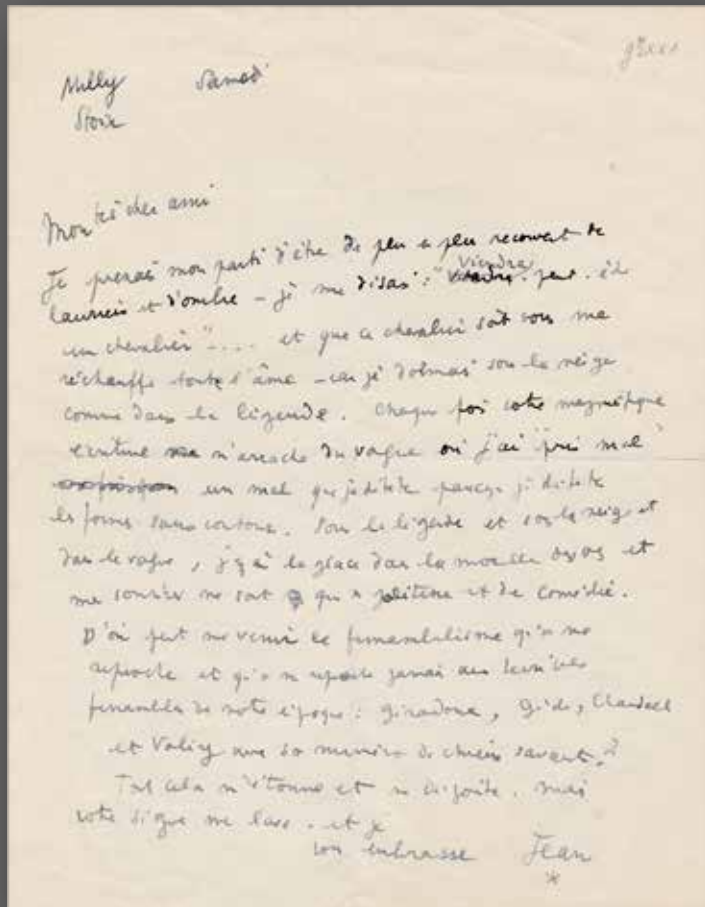 Milly Samedi
Mon très cher ami
Je prenais mon parti d'être de peu a peu recouvert de
lauriers et d'ombre - je me disais : " Viendra peut-être
un chevalier ".... et que ce chevalier soit vous me
réchauffe toute l'âme - car je dormais sous la neige
comme dans la légende. Chaque fois votre magnifique
écriture m'arrache du vague où j'ai "pris mal"
un mal que je déteste parce que je déteste
les formes sans contour. Sous la légende et sous la neige et
dans le vague, j'ai la glace dans la moelle des os et
me sourire ne sont qu'a politesse et de comédie.
D'où peut me venir ce funambulisme qu'on me
reproche et qu'on ne reproche jamais aux terribles
funambules de notre époque : Giraudoux, Gide, Claudel
et Valéry avec sa manière de chien savant ?
Tout cela m'étonne et me dégoûte. mais
votre signe me lave. et je
vous embrasse Jean